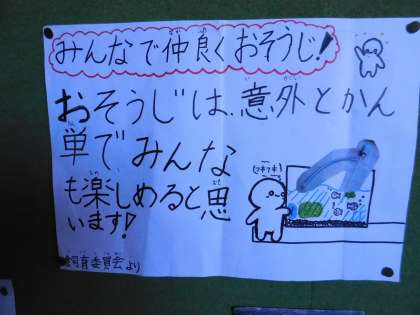 みんなで仲良くおそうじ!
おそうじは、意外とかん
単でみんな
も楽しめると思
います!
飼育委員会より